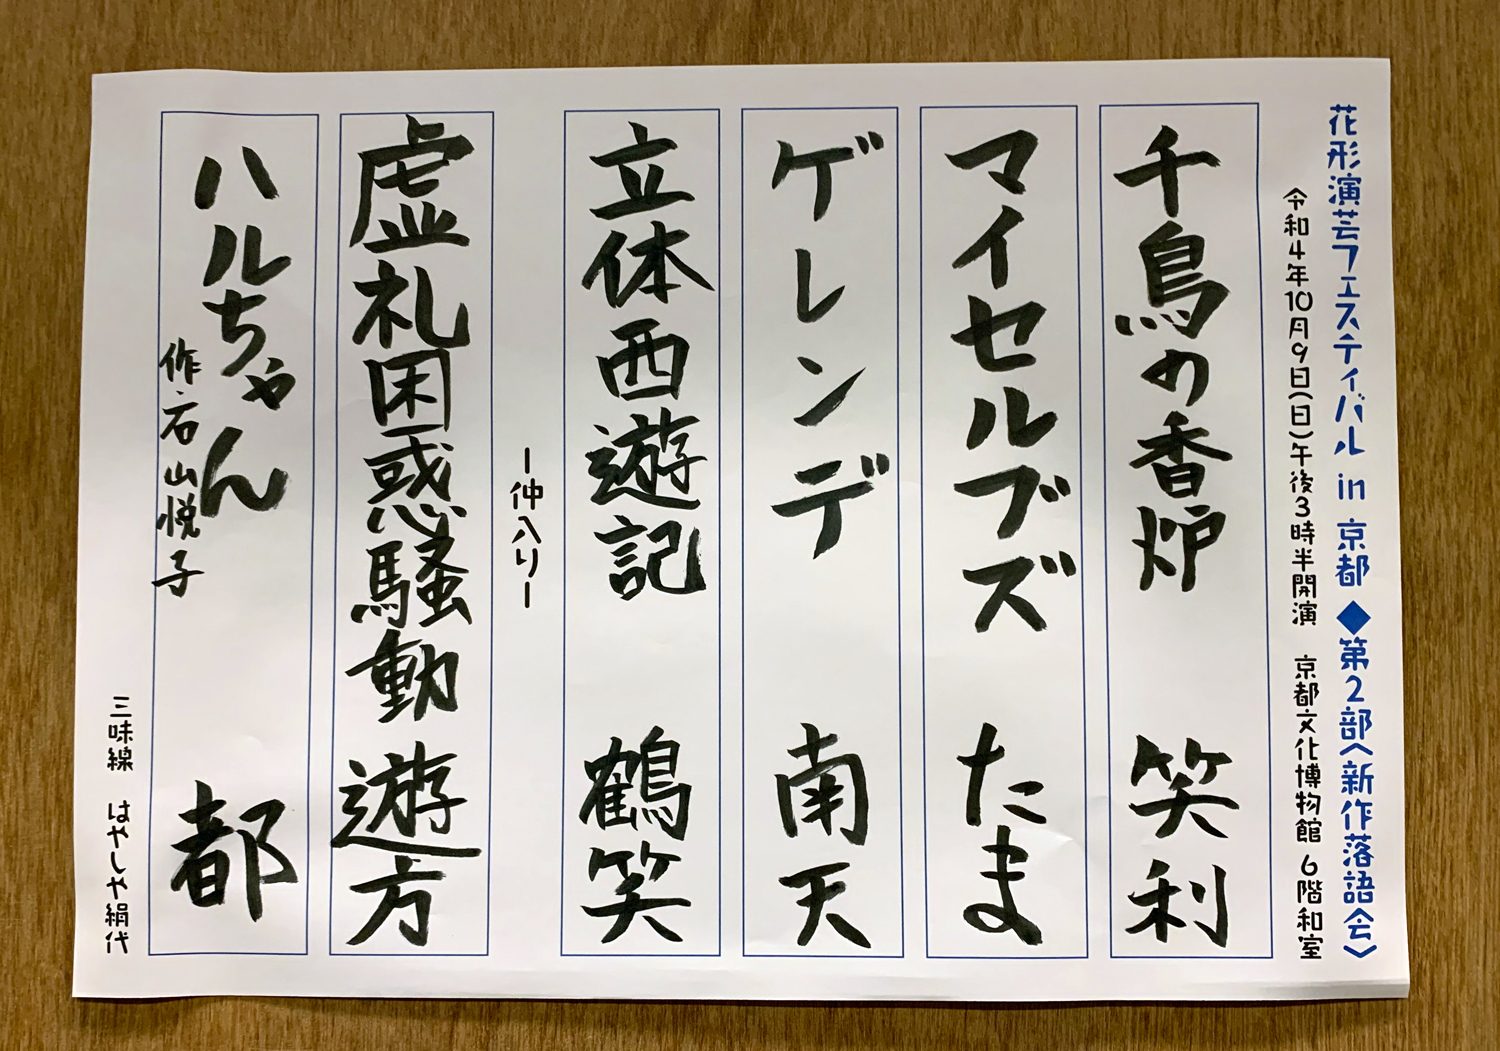 花形演芸フェスティバル in 京都 ◆第2部〈新作落語会〉
令和4年10月9日(日)午後3時半開演 京都文化博物館 6階和室
千鳥の香炉 笑利
マイセルブズ たま
ゲレンデ 南天
立体西遊記 鶴笑
ー仲入りー
虚礼困惑騒動 遊方
ハルちゃん 都
作・石山悦子
三味線 はやしや絹代